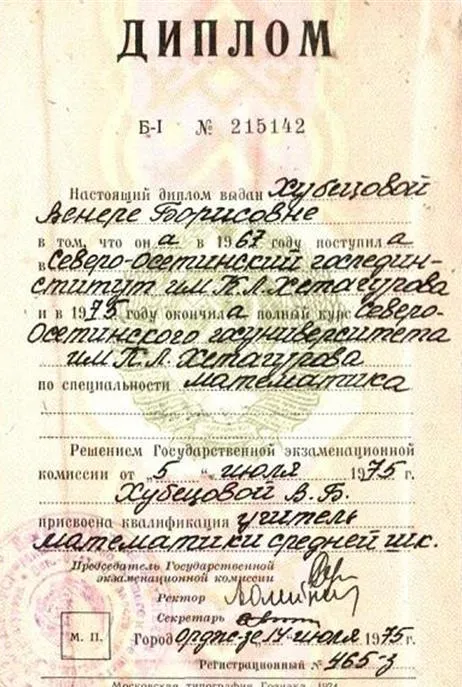 ДИПЛОМ
Б-I № 215142
Настоящий диплом выдан Хубецовой
Венере Борисовне
в том, что он а в 1967 году поступил а
в Северо-Осетинский госпедин-
ститут им К.Л. Хетагурова
и в 1975 году окончила полный курс Северо-
Осетинского госуниверситета
им К.Л. Хетагурова
по специальности математика
Решением Государственной экзаменационной
комиссии от „5“ июля 1975 г.
Хубецовой В. Б.
присвоена квалификация учитель
математики средней шк.
Председатель Государственной
экзаменационной комиссии
Ректор
Секретарь
М. П.
Город Ордж-зе 14 июля 1975 г
Регистрационный № 465-з
Московская типография Гознака. 1974.